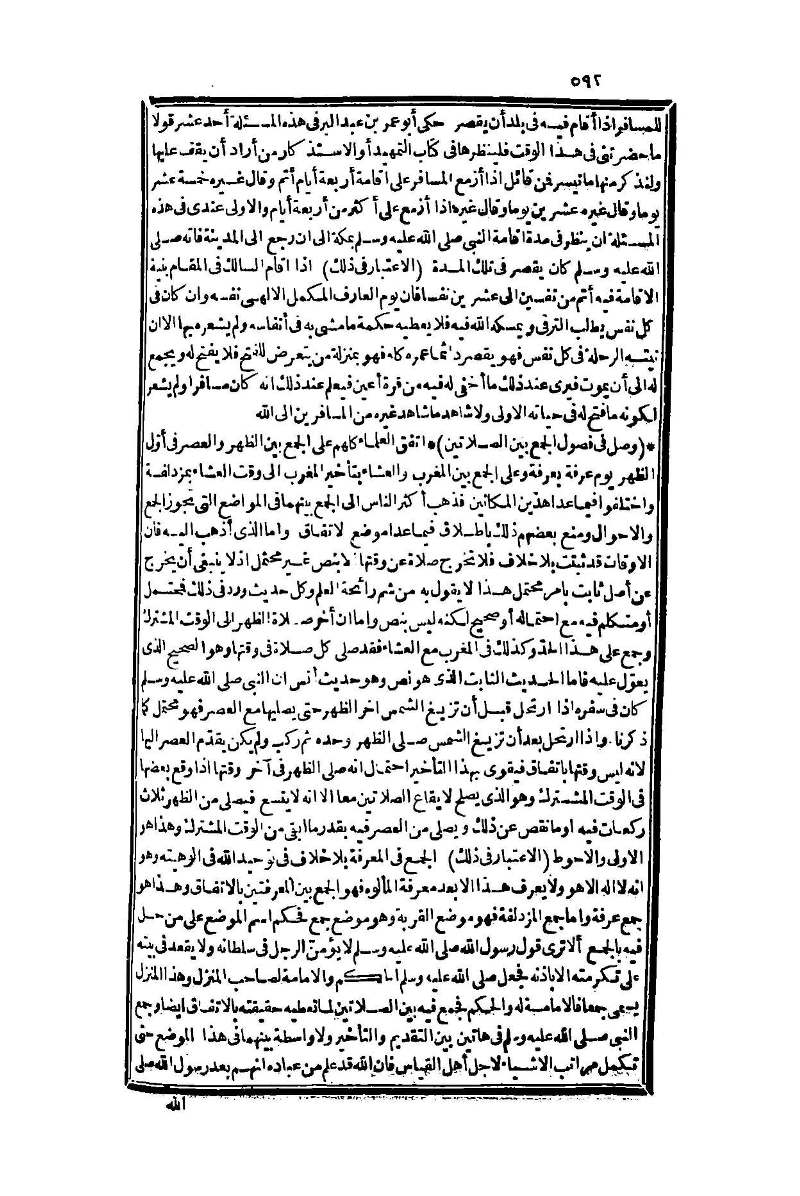 ٥٩٢
للمسافر اذا أقام فيه فى بلد أن يقصر حكى أبو عمر بن عبد البر فى هذه المسئلة أحد عشر قولا
ما حضرتنى فى هذا الوقت فلينظرها فى كتاب التمهيد أو الاستذكار من أراد أن يقف عليها
ولنذكر منها ما تيسر فمن قائل اذا أزمع المسافر على اقامة أربعة أيام أتم وقال غيره خمسة عشر
يوما وقال غيره عشرين يوما وقال غيره اذا أزمع على أكثر من أربعة أيام والاولى عندى فى هذه
المسئلة ان ينظر فى مدة اقامة النبى صلى الله عليه وسلم بمكة الى ان رجع الى المدينة فانه صلى
الله عليه وسلم كان يقصر فى تلك المدة (الاعتبار فى ذلك) اذا أقام السالك فى المقام بنية
الاقامة فيه أتم من نفسين الى عشرين نفسا فان يوم العارف المكمل الالهى نفسه وان كان فى
كل نفس يطلب الترقى ويمسكه الله فيه فلا يعطيه حكمة ما مشى به فى أنفاسه ولم يشعره بها الا ان
نيته الرحلة فى كل نفس فهو يقصر دائما عمره كله فهو بمنزلة من يتعرض للفتح فلا يفتح له ويجمع
له الى أن يموت فيرى عند ذلك ما أخفى له فيه من قرة أعين فيعلم عند ذلك انه كان مسافرا ولم يشعر
لكونه ما فتح له فى حياته الاولى ولا شاهد ما شاهد غيره من المسافرين الى الله
*(وصل فى فصول الجمع بين الصلاتين)* اتفق العلماء كلهم على الجمع بين الظهر والعصر فى أول
الظهر يوم عرفة بعرفة وعلى الجمع بين المغرب والعشاء بتأخير المغرب الى وقت العشاء بمزدلفة
واختلفوا فيما عدا هذين المكانين فذهب أكثر الناس الى الجمع بينهما فى المواضع التى يجوز الجمع
والاحوال ومنع بعضهم ذلك باطلاق فيما عدا موضع الاتفاق واما الذى أذهب اليه فان
الاوقات قد ثبتت بلا خلاف فلا تخرج صلاة عن وقتها الا بنص غير محتمل اذ لا ينبغى أن يخرج
عن أصل ثابت بامر محتمل هذا لا يقول به من شم رائحة العلم وكل حديث ورد فى ذلك فمحتمل
أو متكلم فيه مع احتماله أو صحيح لكنه ليس بنص واما ان أخر صلاة الظهر الى الوقت المشترك
وجمع على هذا الحد وكذلك فى المغرب مع العشاء فقد صلى كل صلاة فى وقتها وهو الصحيح الذى
يعول عليه فاما الحديث الثابت الذى هو نص وهو حديث أنس ان النبى صلى الله عليه وسلم
كان فى سفره اذا ارتحل قبل أن تزيغ الشمس اخر الظهر حتى يصليها مع العصر فهو محتمل كما
ذكرنا. واذا ارتحل بعد أن تزيغ الشمس صلى الظهر وحده ثم ركب ولم يكن يقدم العصر اليها
لانه ليس وقتها باتفاق فيقوى بهذا التأخير احتمال انه صلى الظهر فى آخر وقتها اذا وقع بعضها
فى الوقت المشترك وهو الذى يصلح لايقاع الصلاتين معا الا انه لا يتسع فيصلى من الظهر ثلاث
ركعات فيه او ما نقص عن ذلك ويصلى من العصر فيه بقدر ما ابقى من الوقت المشترك وهذا هو
الاولى والاحوط (الاعتبار فى ذلك) الجمع فى المعرفة بلا خلاف فى توحيد الله فى الوهيته وهو
انه لا اله الا هو ولا يعرف هذا الا بعد معرفة المألوه فهو الجمع بين المعرفتين بالاتفاق وهذا هو
جمع عرفة واما جمع المزدلفة فهو موضع القربة وهو موضع جمع فحكم اسم الموضع على من حل
فيه بالجمع ألا ترى قول رسول الله صلى الله عليه وسلم لا يؤمن الرجل فى سلطانه ولا يقعد فى بيته
على تكرمته الا باذنه فجعل صلى الله عليه وسلم الحكم والامامة لصاحب المنزل وهذا المنزل
يسمى جمعا فالامامة له والحكم فجمع فيه بين الصلاتين لما تعطيه حقيقته بالاتفاق ايضا وجمع
النبى صلى الله عليه وسلم فى هاتين بين التقديم والتأخير ولا واسطة بينهما فى هذا الموضع حتى
تكمل مراتب الاشياء لاجل أهل القياس فان الله قد علم من عباده انهم بعد رسول الله صلى
الله